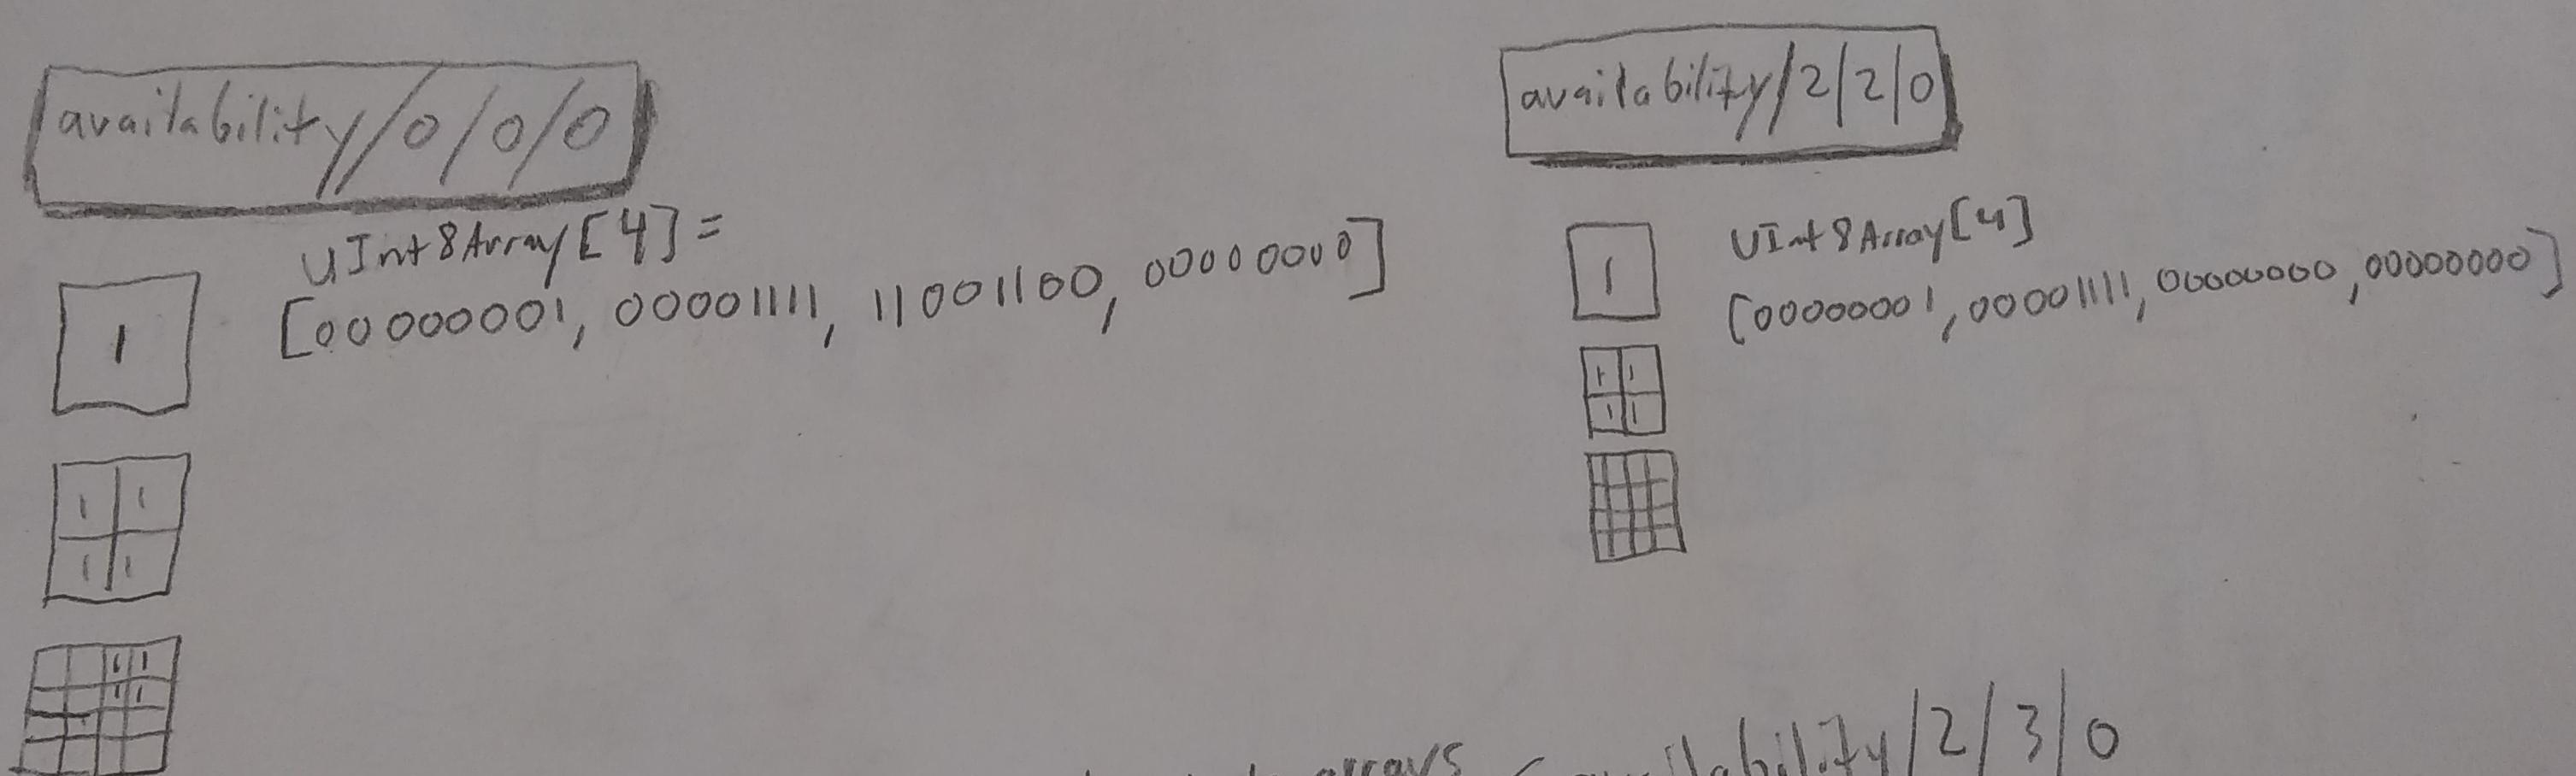 availability/0/0/0
UInt8Array[4]=
[00000001, 00001111, 11001100, 00000000]
1
1 1
1 1
1 1
1 1
availability/2/2/0
UInt8Array[4]
[00000001, 00001111, 00000000, 00000000]
1
1 1
1 1
arrays
availability/2/3/0